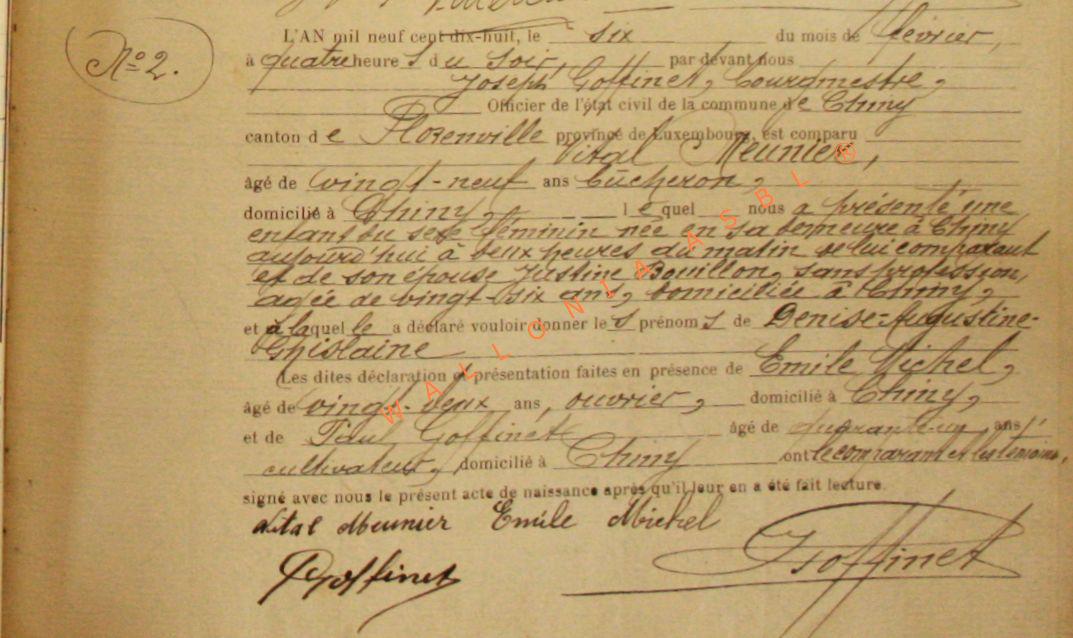 No 2.
L'AN mil neuf cent dix-huit, le six du mois de février,
à quatre heures du soir, par devant nous
Joseph Goffinet, bourgmestre,
Officier de l'état civil de la commune de Chiny
canton de Florenville province de Luxembourg, est comparu
Vital Meunier,
âgé de vingt-neuf ans bûcheron,
domicilié à Chiny, lequel nous a présenté une
enfant du sexe féminin née en sa demeure à Chiny
aujourd'hui à deux heures du matin de lui comparant
et de son épouse Justine Bouillon, sans profession,
âgée de vingt-six ans, domiciliée à Chiny,
et à laquelle a déclaré vouloir donner les prénoms de Denise-Augustine-
Ghislaine
Les dites déclaration et présentation faites en présence de Emile Michel,
âgé de vingt-deux ans, ouvrier, domicilié à Chiny,
et de Paul Goffinet âgé de quarante-un ans,
cultivateur, domicilié à Chiny ont le comparant et les témoins,
signé avec nous le présent acte de naissance après qu'il leur en a été fait lecture.
Vital Meunier Emile Michel
PGoffinet JGoffinet
WALLONIA ASBL ®